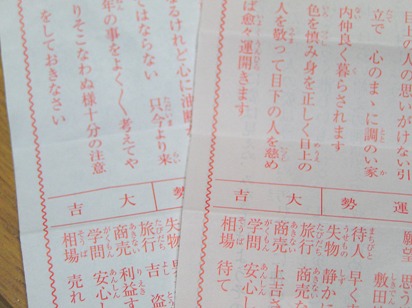 目上の人の思いがけない引
立で 心のまゝに調のい家
内仲良く暮らされます
色を慎み身を正しく目上の
人を敬って目下の人を慈め
ば愈々運開きます
運 勢
願望 思
待人 早
失物 静か
旅行
商売 上吉
学問 安心
相場 待て
るけれど心に油断
てはならない 只今より来
年の事をよく〱考えてや
りそこなわぬ様十分の注意
をしておきなさい
大 吉
失物
旅行 吉 盗
商売 利益す
学問 安心
相場 売れ